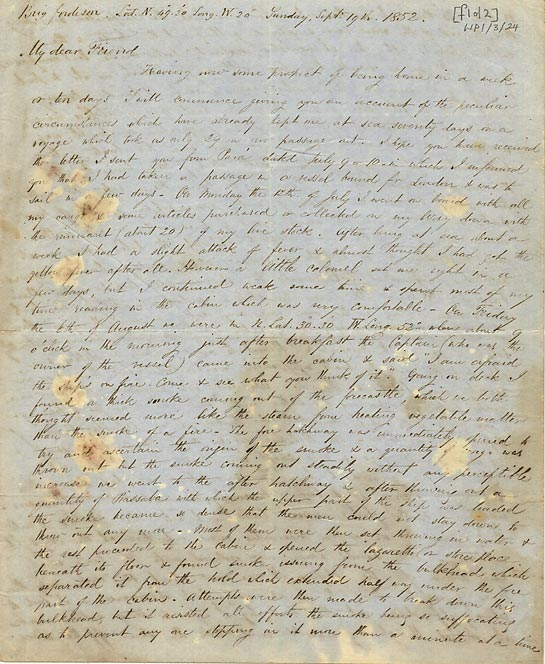 Brig Jordeson. Lat. N. 49.30 Long. W. 20° Sunday, Septr. 19th. 1852.
[f1of2]
WP1/3/24
My dear Friend
Having now some prospect of being home in a week
or ten days I will commence giving you an account of the peculiar
circumstances which have already kept me at sea seventy days on a
voyage which took us only 29 on our passage out. I hope you have received
the letter I sent you from Para dated July 9 or 10 in which I informed
you that I had taken a passage in a vessel bound for London & was to
sail in a few days - On Monday the 12th. of July I went on board with all
my cargo & some articles purchased or collected on my way down with
the remnant (about 20) of my live stock. After being at sea about a
week I had a slight attack of fever & almost thought I had got the
yellow fever after all. However a little calomel set me right in a
few days, but I continued weak some time & spent most of my
time reading in the cabin which was very comfortable - On Friday
the 6th of August we were in N. Lat. 30.30 W. Long. 52° when about 9
o'clock in the morning just after breakfast the Captain (who was the
owner of the vessel) came into the cabin & said "I am afraid
the ship's on fire. Come & see what you think of it." Going on deck I
found a thick smoke coming out of the forecastle, which we both
thought seemed more like the steam from heating vegetable matter
than the smoke of a fire - The fore hatchway was immediately opened to
try and ascertain the origin of the smoke & a quantity of cargo was
thrown out but the smoke coming out steadily without any perceptible
increase we went to the after hatchway & after throwing out a
quantity of Piassaba with which the upper part of the ship was loaded
the smoke became so dense that the men could not stay down to
throw out any more - Most of them were then set throwing in water &
the rest proceeded to the cabin & opened the lazaretto or store place
beneath its floor & found smoke issuing from the bulkhead which
separated it from the hold which extended half way under the fore
part of the cabin. Attempts were then made to break down this
bulkhead, but it resisted all efforts the smoke being so suffocating
as to prevent any one stopping in it more than a minute at a time